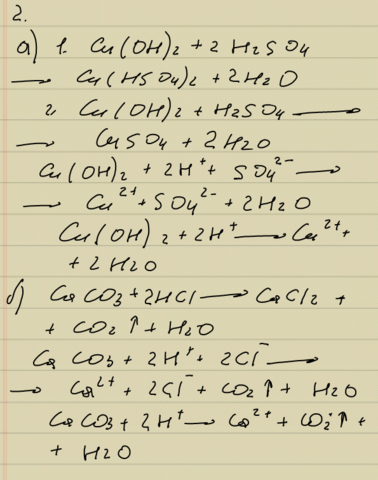 2.
а) 1. Cu(OH)2 + 2H2SO4
⟶ Cu(HSO4)2 + 2H2O
2. Cu(OH)2 + H2SO4 ⟶
⟶ CuSO4 + 2H2O
Cu(OH)2 + 2H⁺ + SO4²⁻ ⟶
⟶ Cu²⁺ + SO4²⁻ + 2H2O
Cu(OH)2 + 2H⁺ ⟶ Cu²⁺ +
+ 2H2O
б) CaCO3 + 2HCl ⟶ CaCl2 +
+ CO2↑ + H2O
CaCO3 + 2H⁺ + 2Cl⁻ ⟶
⟶ Ca²⁺ + 2Cl⁻ + CO2↑ + H2O
CaCO3 + 2H⁺ ⟶ Ca²⁺ + CO2↑ +
+ H2O